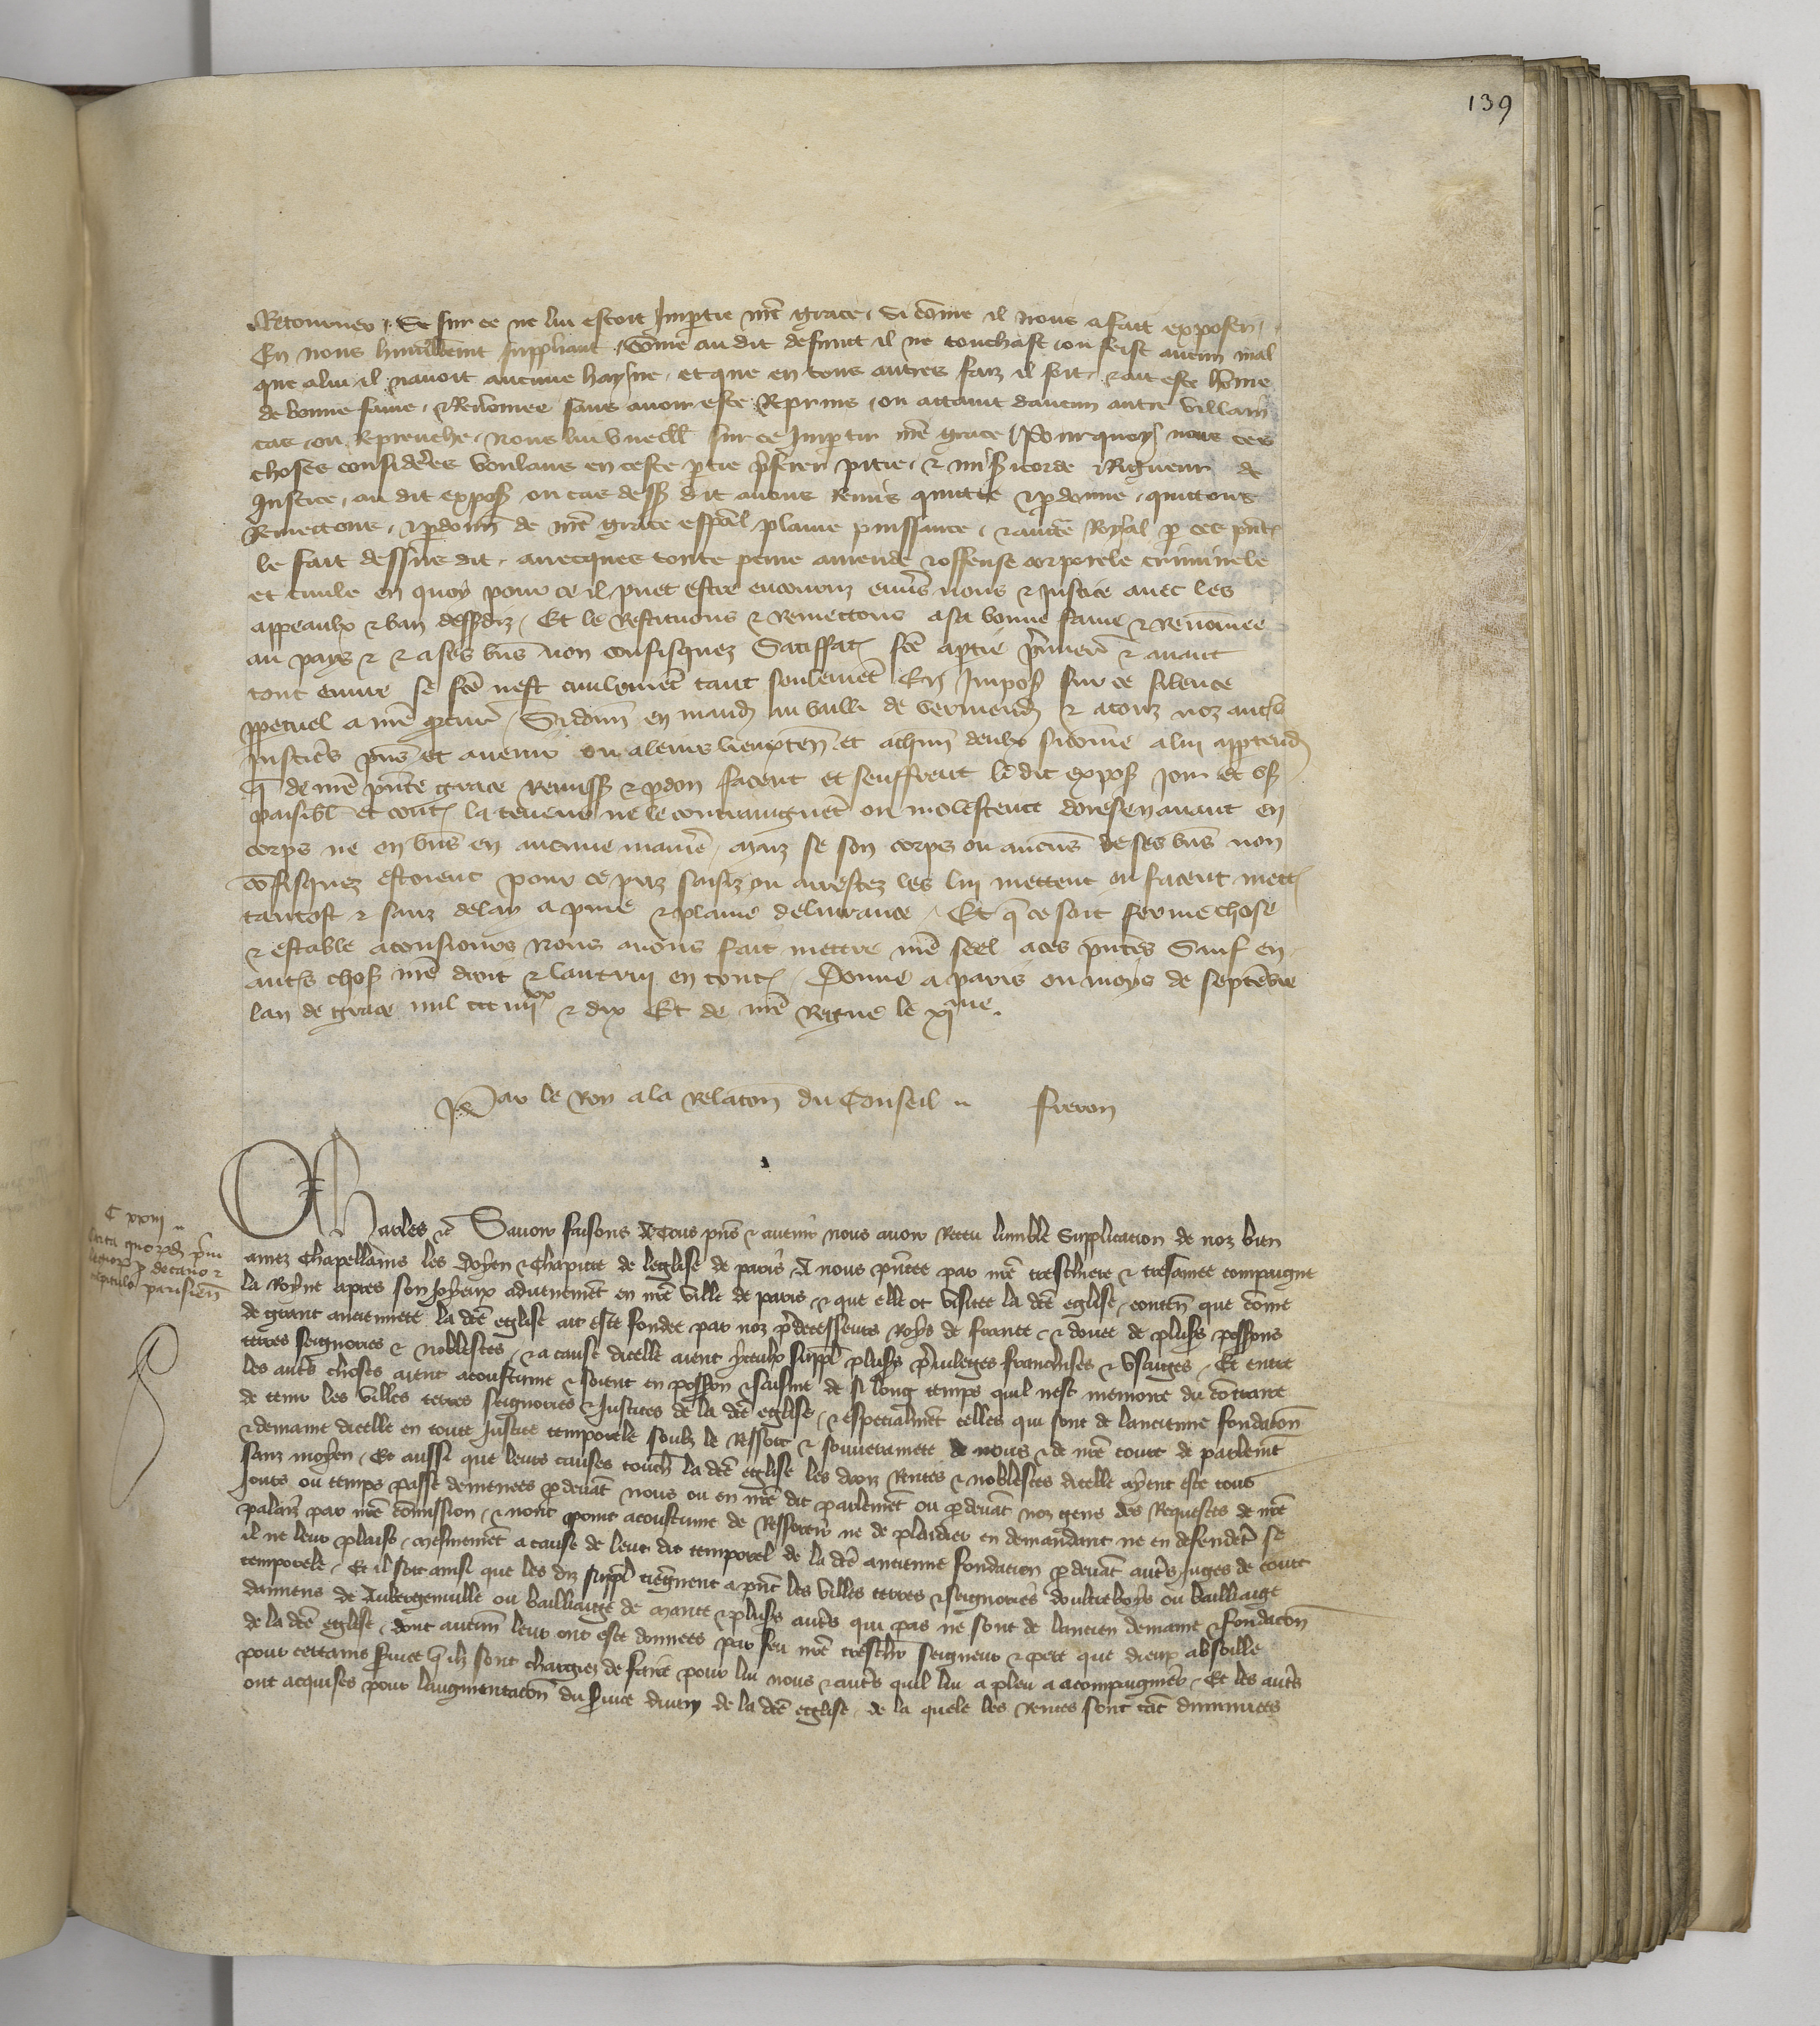 139
Retourner. Se sur ce ne lui estoit Impartie nre grace. Si come il nous a fait exposer.
En nous humblement suppliant. come au dit defunt il ne touchast ou feist aucun mal
que a lui il navoit aucune hayne. et que en tous autres faiz il soit. & ait este home
de bonne fame. & Renomee sans avoir este Reprins. ou attaint daucun autre villain
cas. ou Repreuche. nous lui vueill sur ce Impartir nre grace. Pourquoy nous ces
choses considerees voulans en ceste ptie pferer pitie. & misicorde a Rigueur de
Justice. au dit expos ou cas dess dit avons Remis quitte & pdonne. quittons
Remettons. & pdonn de nre grace espal plaine puissance. & aucte Royal p ces pnt
le fait dessus dit. avecques toute peine amende & offense corporele criminele
et civile en quoy pour ce il puet estre encouruz envs nous & justice avec les
appeaulx & ban dessdiz. Et le Restituons & Remettons a sa bonne fame & Renomee
au pays & & a ses bns non confisquez Satiffac fce a ptie pmier & avant
tout euvre se fce nest civilement tant seulement En Impos sur ce silence
ppetuel a nre procur. Si donn en mand au bailli de vermend & a touz noz auts
Justicrs pns et avenir ou a leurs lieuxten et a chun deulx si come a lui apptend
q de nre pnte grace Remiss & pdon facent et seuffrent le dit expos joir et us
paisibl et cont la teneur ne le contraingnent ou molestent doresenavant en
corps ne en bns en aucune maniere. maiz se son corps ou aucuns de ses bns non
cofisquez estoient pour ce priz saisiz ou arrestez les lui mettent ou facent mett
tantost & sanz delay a plaine delivrance. Et q ce soit ferme chose
& estable a tousiours Nous avons fait mettre nre seel a ces pntes Sauf en
auts chos nre droit & lautrui en tout. Donne a paris ou moys de septebre
lan de grace mil ccc iiii xx & dix Et de nre Regne le xi me.
Par le Roy a la Relacon du Conseil Freron
C xxiii
carta quorund privi
legiorp p decano &
capitulo parisien
Charles &c Savoir faisons A tous pns & avenir nous avoir Receu lumble Supplicacion de noz bien
amez Chapellains les doyen & chapitre de leglise de paris. A nous pntee par nre treschiere & tresamee compaigne
la Royne apres son joyeux advenement en nre ville de paris & que elle ot visitee la dce eglise. conten que come
de grant anciennete la dce eglise ait este fondee par noz pdecesseurs Roys de france. & douee de plusrs possions
terres seignories & noblesces. & a cause dicelle aient yceulx suppl plusrs privileges franchises & usaiges. Et entre
les auts choses aient acoustume & soient en possion & saisine de si long temps quil nest memoire du contraire
de tenir les villes terres seignories & Justices de la dce eglise. & especialment celles qui sont de lancienne fondacon
& demaine dicelle en toute Justice temporele soubz le Ressort & souverainete de nous & de nre court de parlement
sanz moyen. Et aussi que leurs causes touch la dce eglise les droiz Rentes & noblesces dicelle ayent este tous
jours ou temps passe demenees p devant nous ou en nre dit parlement ou p devant noz gens des Requestes de nre
palais par nre comission. & nont point acoustume de Ressortir ne de plaidier en demandant ne en defendent se
il ne leur plaisr. mesmement a cause de leur dit temporel de la dce ancienne fondacion p devant auts juges de court
temporele. Et il soit ainsi que les diz suppl tiegnent a pnt les villes terres & seignories doultreboys ou bailliage
damiens de Aubergenville ou bailliaige de mante & plusrs auts qui pas ne sont de lancien demaine & fondacon
de la dce eglise. dont aucun leur ont este donnees par feu nre treschr seigneur & pere que dieux absoille
pour certains svice q ilz sont chargiez de faire pour lui nous & auts quil lui a pleu a acompaigner. Et les auts
ont acquises pour laugmentacon du svice divin de la dce eglise. de la quele les Rentes sont tat diminuees